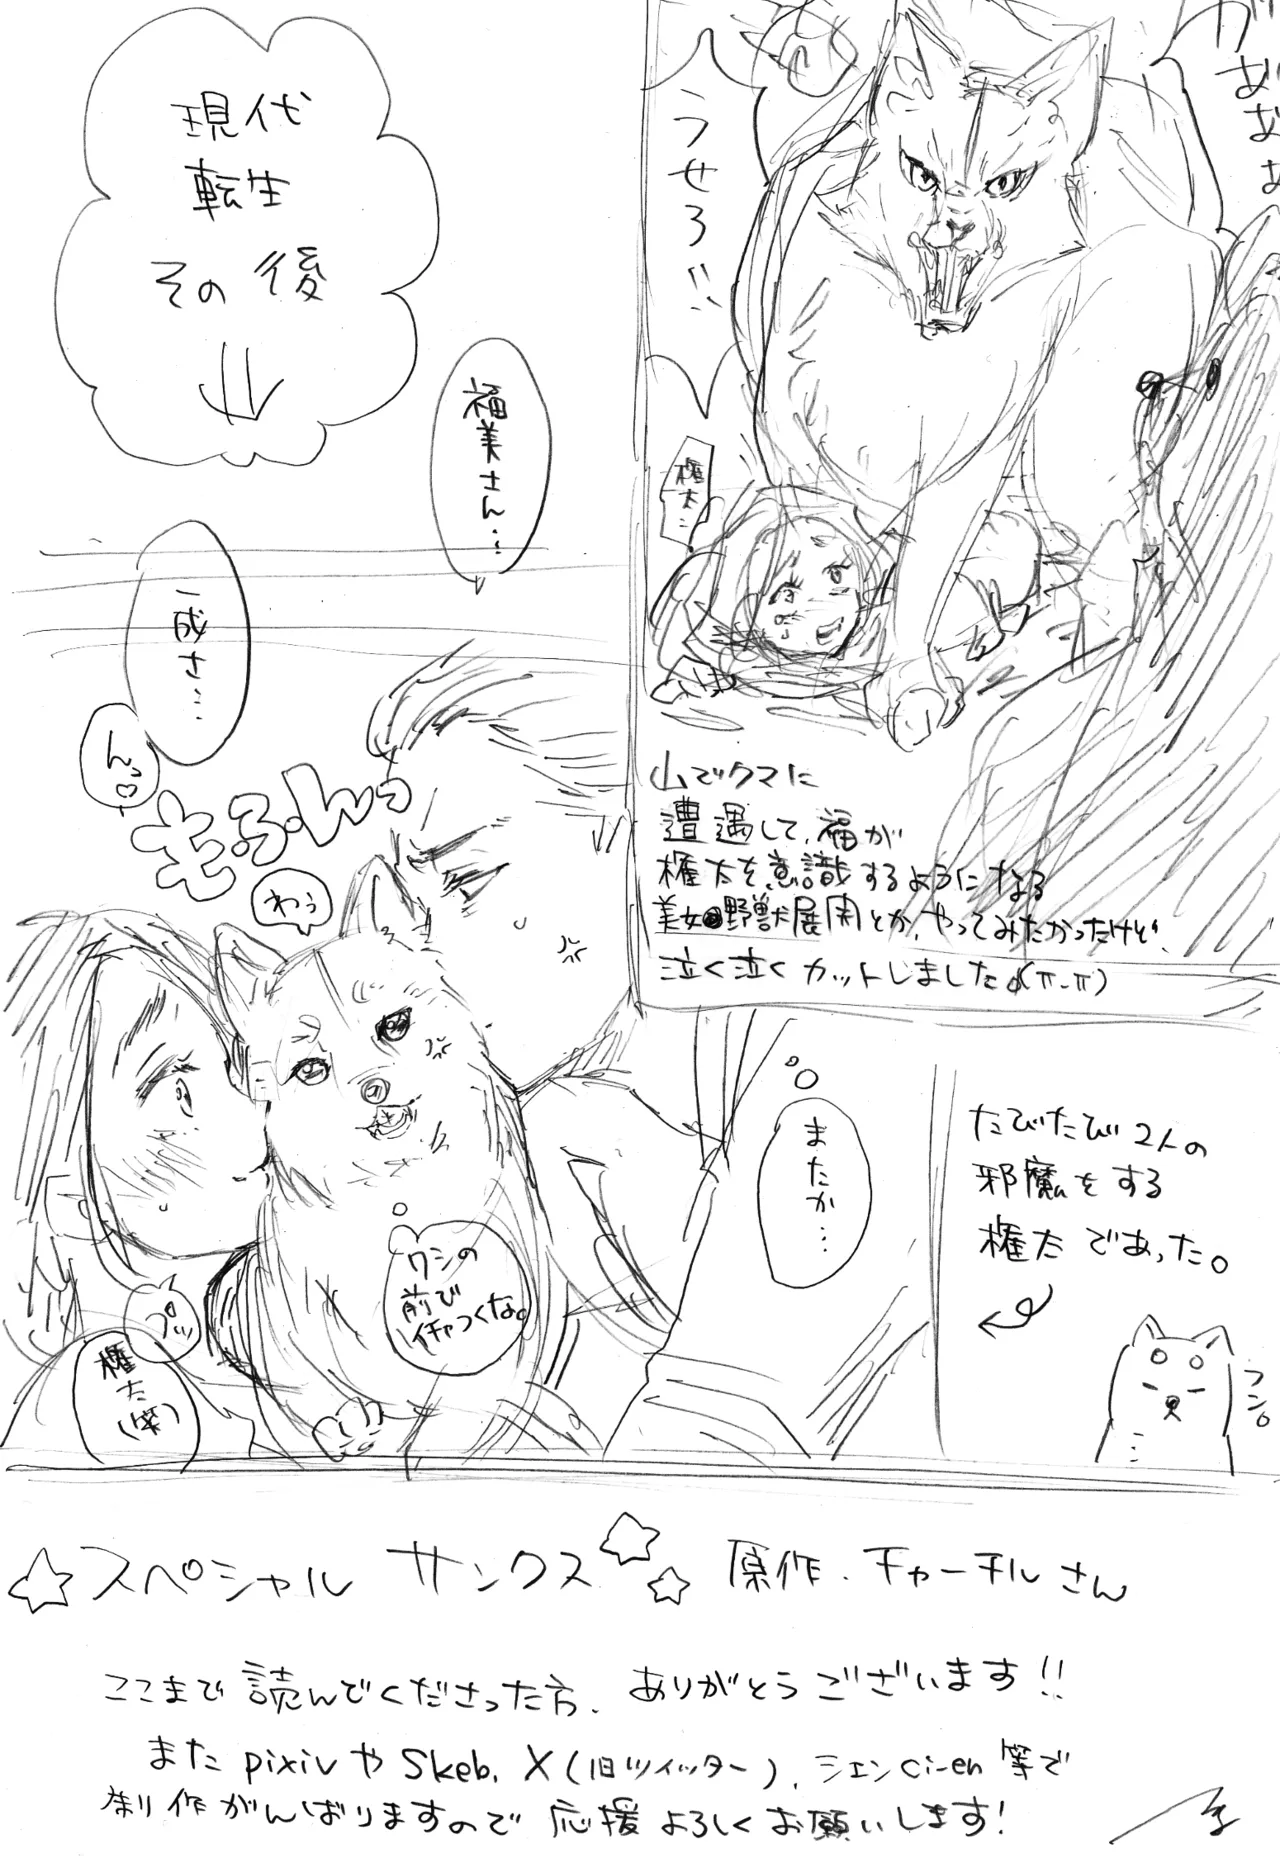 がぁぁぁ
うせろ!!
権太…
山でクマに
遭遇して、福が
権太を意識するようになる
美女●野獣展開とか、やってみたかったけど、
泣く泣くカットしました。(π-π)
現代
転生
その後
福美さん…
一成さ…
んっ♡
もふんっ
わう
ワシの
前で
イチャつくな。
プッ
権太(笑)
またか…
たびたび2人の
邪魔をする
権太であった。
フン。
☆スペシャル サンクス☆☆ 原作.チャーチルさん
ここまで読んでくださった方、ありがとうございます!!
また pixivや Skeb, X(旧ツイッター), シエンci-en 等で
制作がんばりますので 応援よろしくお願いします!